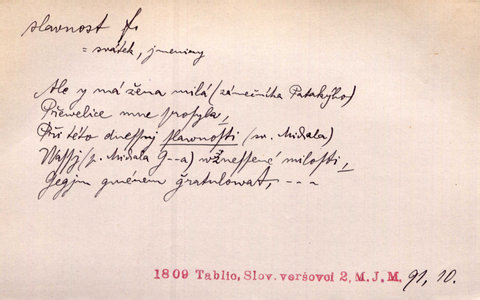 slavnost f.
= svátek, jmeniny
Ale y má žena milá (zámečníka Patakyho)
Přewelice mne prosyla,
Při této dnessnj slawnosti (sv. Michala)
Wassj (p. Michala G--a) wznessené milosti,
Gegjm gménem gratulowat, ---
1809 Tablic, Slov. veršovci 2, M.J.M. 91, 10.